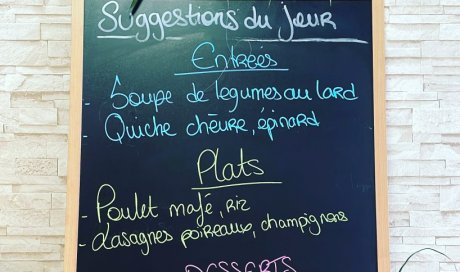 Suggestions du jour
Entrées
- Soupe de légumes au lard
- Quiche chèvre, épinard
Plats
- Poulet mafé, riz
- Lasagnes poireaux, champignons
DESSERTS